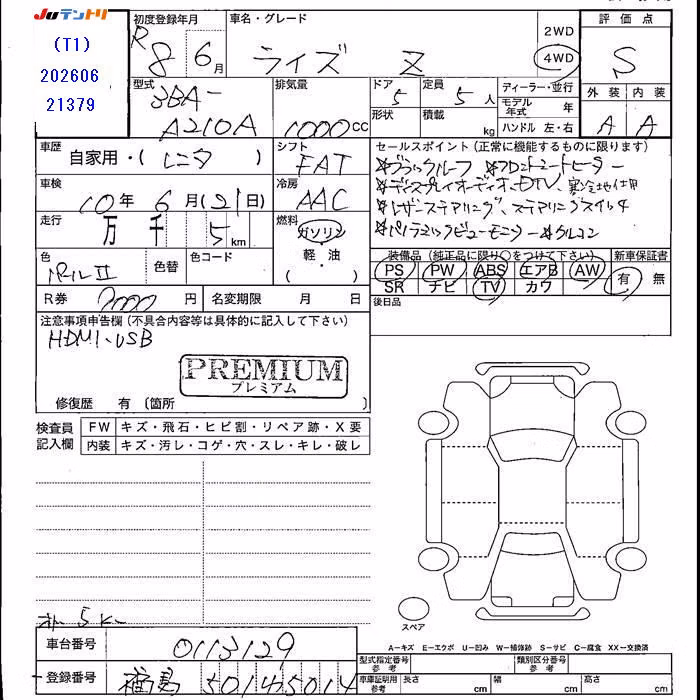 JUテントリ
(T1)
202606
21379
初度登録年月
R8 6月
車名・グレード
ライズ Z
2WD
4WD
評価点
S
外装 内装
A A
型式
3BA-
A210A
排気量
1000 CC
ドア
5
形状
定員
5 人
積載
kg
ディーラー・並行
モデル年式 年
ハンドル 左・右
車歴
自家用・( レンタ )
シフト
FAT
セールスポイント (正常に機能するものに限ります)
*ブラックルーフ *フロントシートヒーター
*ディスプレイオーディオ、DTV、寒冷地仕様
*レザーステアリング、ステアリングスイッチ
*パノラミックビューモニター *クルコン
車検
10年 6月(21日)
冷房
AAC
走行
万 千 5 km
燃料
ガソリン
軽・油
( )
色
パールII
色替
色コード
装備品 (純正品に限り○をつけて下さい)
PS PW ABS エアB AW
SR ナビ TV カワ
新車保証書
有 無
R券
円
名変期限 月 日
後日品
注意事項申告欄 (不具合内容等は具体的に記入して下さい)
HDMI・USB
PREMIUM
プレミアム
修復歴 有 〔箇所 〕
検査員記入欄
FW キズ・飛石・ヒビ割・リペア跡・X要
内装 キズ・汚レ・コゲ・穴・スレ・キレ・破レ
スペア
A−キズ E−エクボ U−凹み W−補修跡 S−サビ C−腐食 XX−交換済
車台番号
0113129
登録番号
福島 501 そ 5014
型式指定番号 参考
類別区分番号 参考
車庫証明用 参考
長さ cm
幅 cm
高さ cm